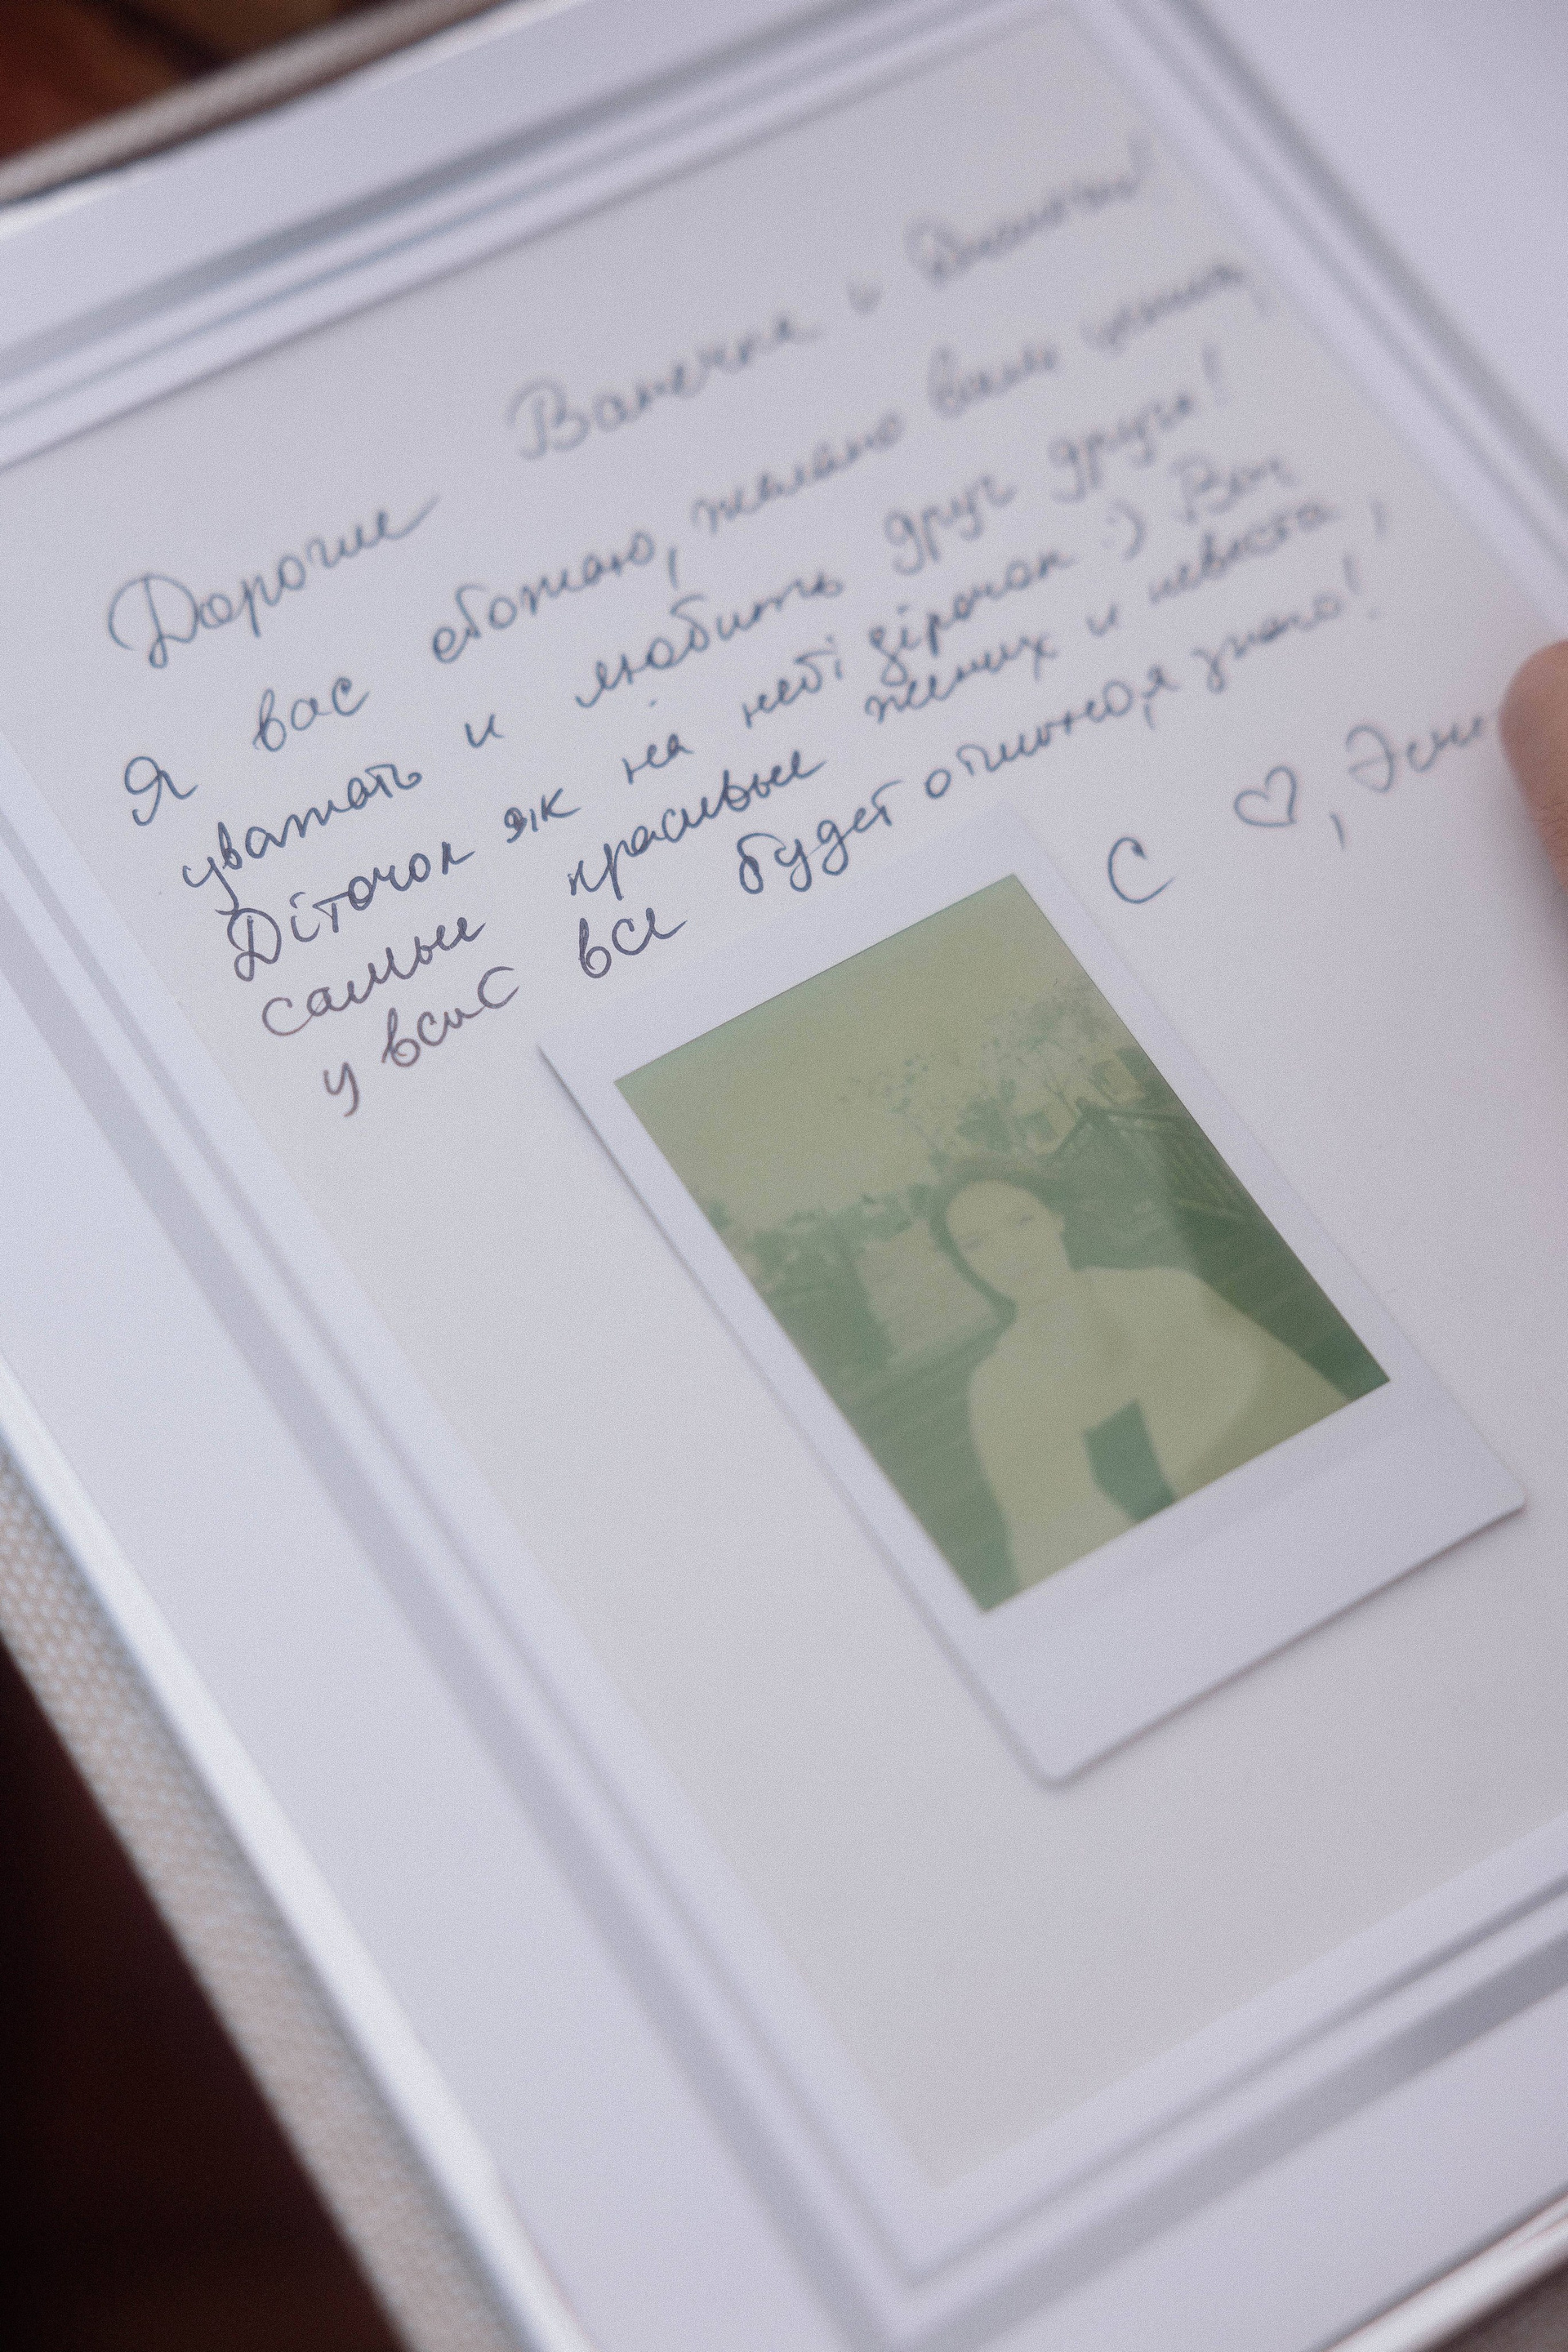 Дорогие Ванечка и
Я вас обожаю, желаю вам ценить,
уважать и любить друг друга!
Діточок як на небі зірочок :) Вы
самые красивые жених и невеста,
у вас все будет отлично, я знаю!
С ♡,